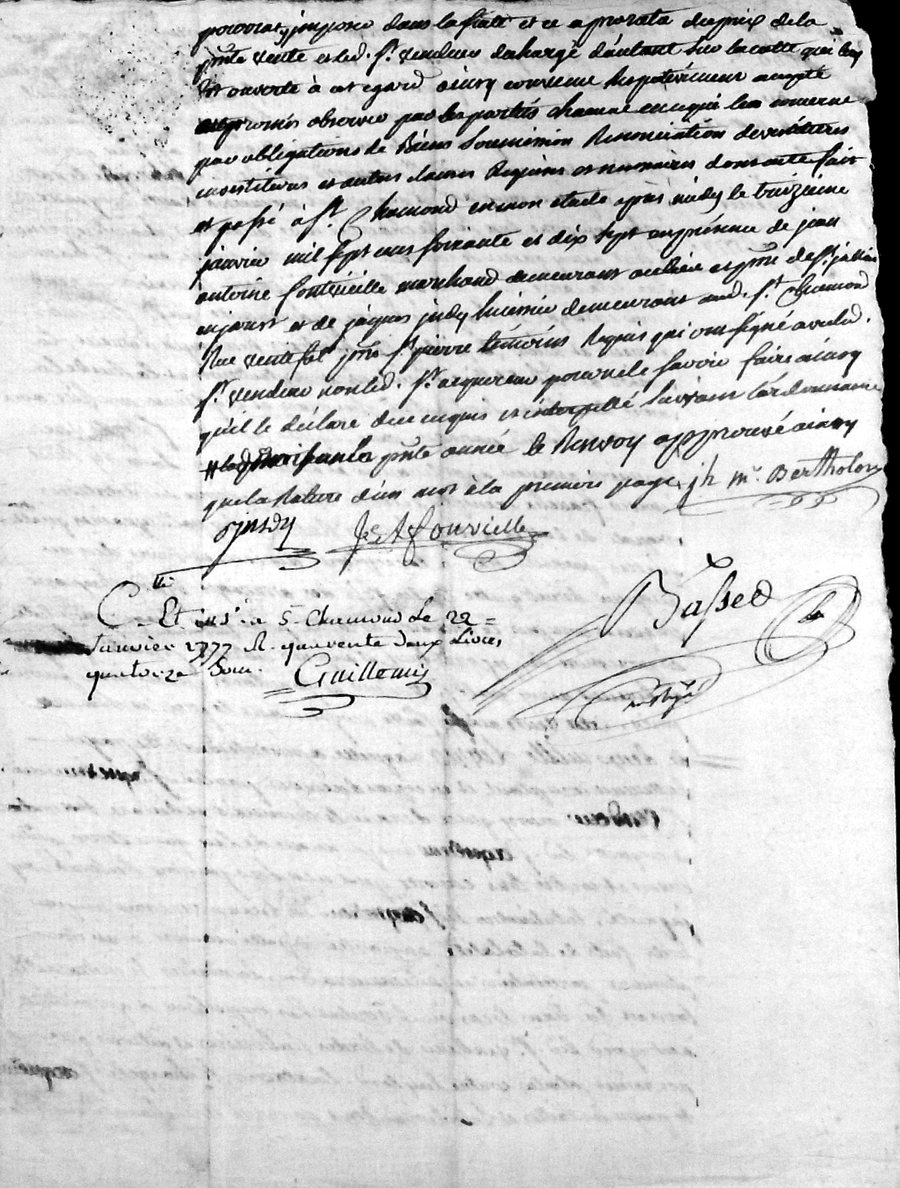 pourrat imposé dans la suite et ce aprorata du prix de la
pnte vente et led. Sr. vendeur dechargé d'autant sur la cotte qui luy
est ouverte à cet egard ainsy convenu respectivement accepté
promis observer par les parties chacune en ce qui les concerne
par obligations de Biens Soumission Renonciation
et autres clauses Requises et necessaires dont acte fait
et passé à St. Chamond en mon etude après midy le traizieme
janvier mil sept cens soixante et dix sept en presence de jean
antoine fontvieille marchand demeurant au lieu et psse de St. julien
en jarest et de jaques judy huissier demeurant aud. St. Chamond
Rue psse St. pierre témoins Requis qui ont signé avec led.
Sr. vendeur non led. Sr. acquereur pour ne le savoir faire ainsy
qu'il le déclare de ce enquis et interpellé suivant l'ordonnance
pnte année le Renvoy approuvé ainsy
que la Rature d'un mot à la premiere page, jh mie Bertholon
Jsudy J A fonvielle
Clle Et ins. à St Chamond Le 22
Janvier 1777 R. quarente deux Livres
quatorze Sous.
Guillemin
Basset